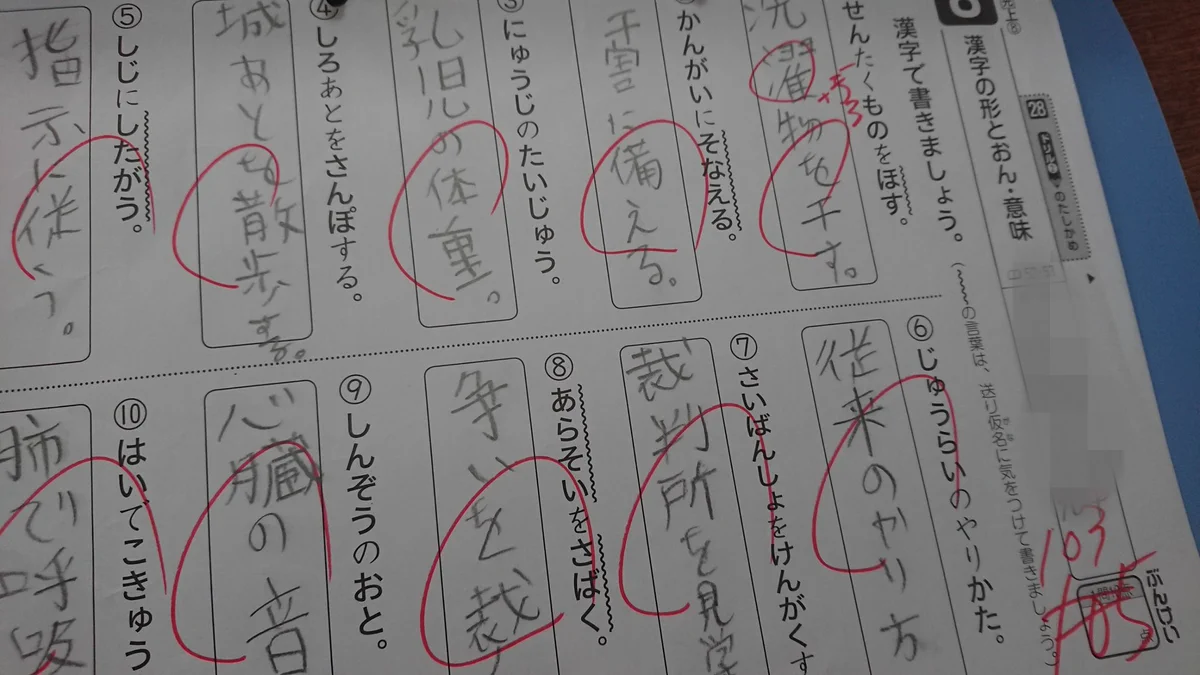 漢字の形とおん・意味
28
のたしかめ
漢字で書きましょう。
(〰〰の言葉は、送り仮名に気をつけて書きましょう。)
せんたくものをほす。
洗濯物を干す。
かんがいにそなえる。
干害に備える。
③にゅうじのたいじゅう。
乳児の体重。
④しろあとをさんぽする。
城あとを散歩する。
⑤しじにしたがう。
指示に従う。
⑥じゅうらいのやりかた。
従来のやり方
⑦さいばんしょをけんがくす
裁判所を見学
⑧あらそいをさばく。
争いを裁
⑨しんぞうのおと。
心臓の音
⑩はいでこきゅう
肺で呼吸
103
105
ぶんけい